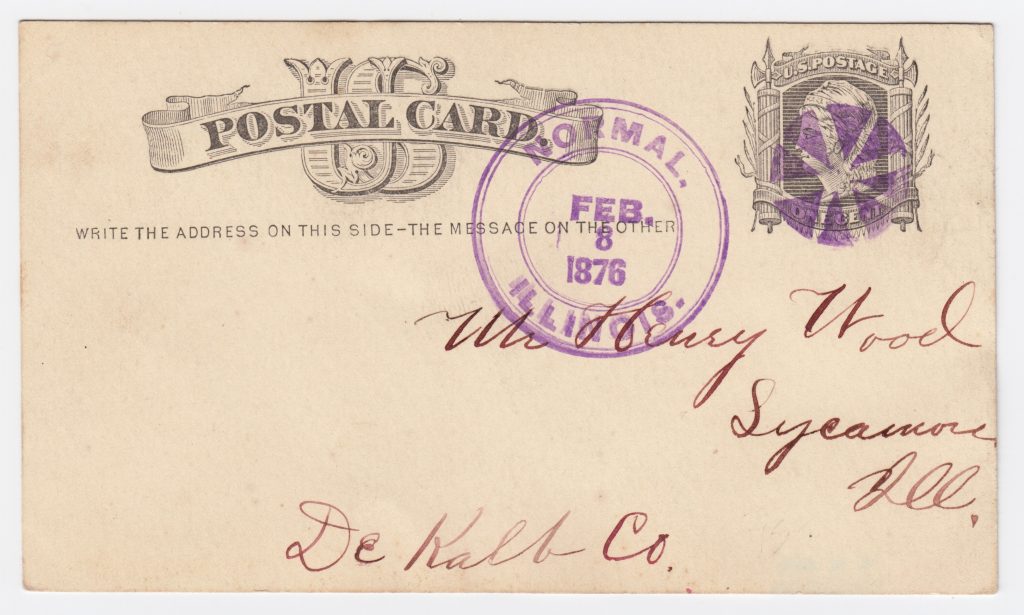 US
POSTAL CARD.
U.S. POSTAGE
ONE CENT
WRITE THE ADDRESS ON THIS SIDE–THE MESSAGE ON THE OTHER
NORMAL.
FEB.
8
1876
ILLINOIS.
Mr Henry Wood
Sycamore
Ill.
De Kalb Co.